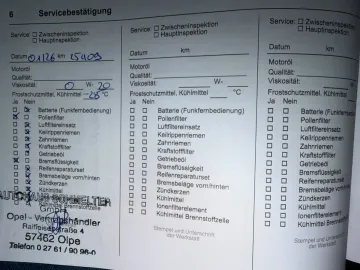 6 Servicebestätigung
Service: ☐ Zwischeninspektion
☐ Hauptinspektion
Datum 01/26 km
Motoröl
Qualität:
Viskosität: 0 W- 20
Frostschutzmittel, Kühlmittel -26 °C
Ja Nein
Batterie (Funkfernbedienung)
Pollenfilter
Luftfiltereinsatz
Keilrippenriemen
Zahnriemen
Kraftstofffilter
Getriebeöl
Bremsflüssigkeit
Reifenreparaturset
Bremsbeläge vorn/hinten
Zündkerzen
Kühlmittel
GmbH
Opel - Vertragshändler
Raiffeisenstraße 4
57462 Olpe
Telefon 0 27 61 / 90 98-0
Service: ☐ Zwischeninspektion
☐ Hauptinspektion
Datum km
Motoröl
Qualität:
Viskosität: W-
Frostschutzmittel, Kühlmittel °C
Ja Nein
Batterie (Funkfernbedienung)
Pollenfilter
Luftfiltereinsatz
Keilrippenriemen
Zahnriemen
Kraftstofffilter
Getriebeöl
Bremsflüssigkeit
Reifenreparaturset
Bremsbeläge vorn/hinten
Zündkerzen
Kühlmittel
Ionenfilterelement
Kühlmittel Brennstoffzelle
Stempel und Unterschrift
der Werkstatt
Service: ☐ Zwischeninspektion
☐ Hauptinspektion
Datum km
Motoröl
Qualität:
Viskosität:
Frostschutzmittel, Kühlm
Ja Nein
Batterie (Funkfer
Pollenfilter
Luftfiltereinsatz
Keilrippenriemen
Zahnriemen
Kraftstofffilter
Getriebeöl
Bremsflüssigkeit
Reifenreparaturs
Bremsbeläge vor
Zündkerzen
Kühlmittel
Ionenfilterelem
Kühlmittel Bre
Stempel und U
der Wer